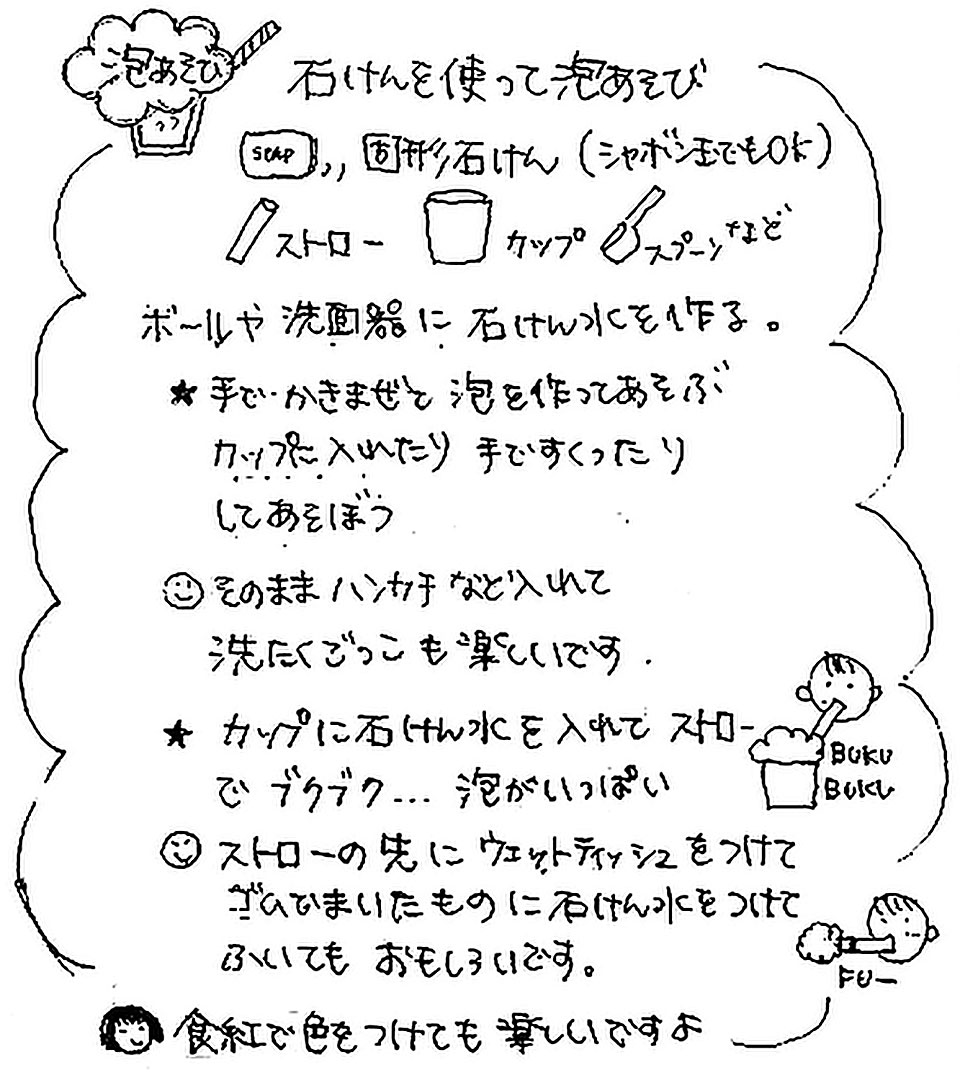 泡あそび
石けんを使って泡あそび
SOAP 固形石けん (シャボン玉でもOK)
ストロー カップ スプーンなど
ボールや洗面器に石けん水を作る。
★手でかきまぜて泡を作ってあそぶ
カップに入れたり手ですくったり
してあそぼう
そのままハンカチなど入れて
洗たくごっこも楽しいです.
★カップに石けん水を入れてストロー
でブクブク… 泡がいっぱい
BUKU
BUKU
ストローの先にウェットティッシュをつけて
ゴムでまいたものに石けん水をつけて
ふいてもおもしろいです。
FUー
食紅で色をつけても楽しいですよ